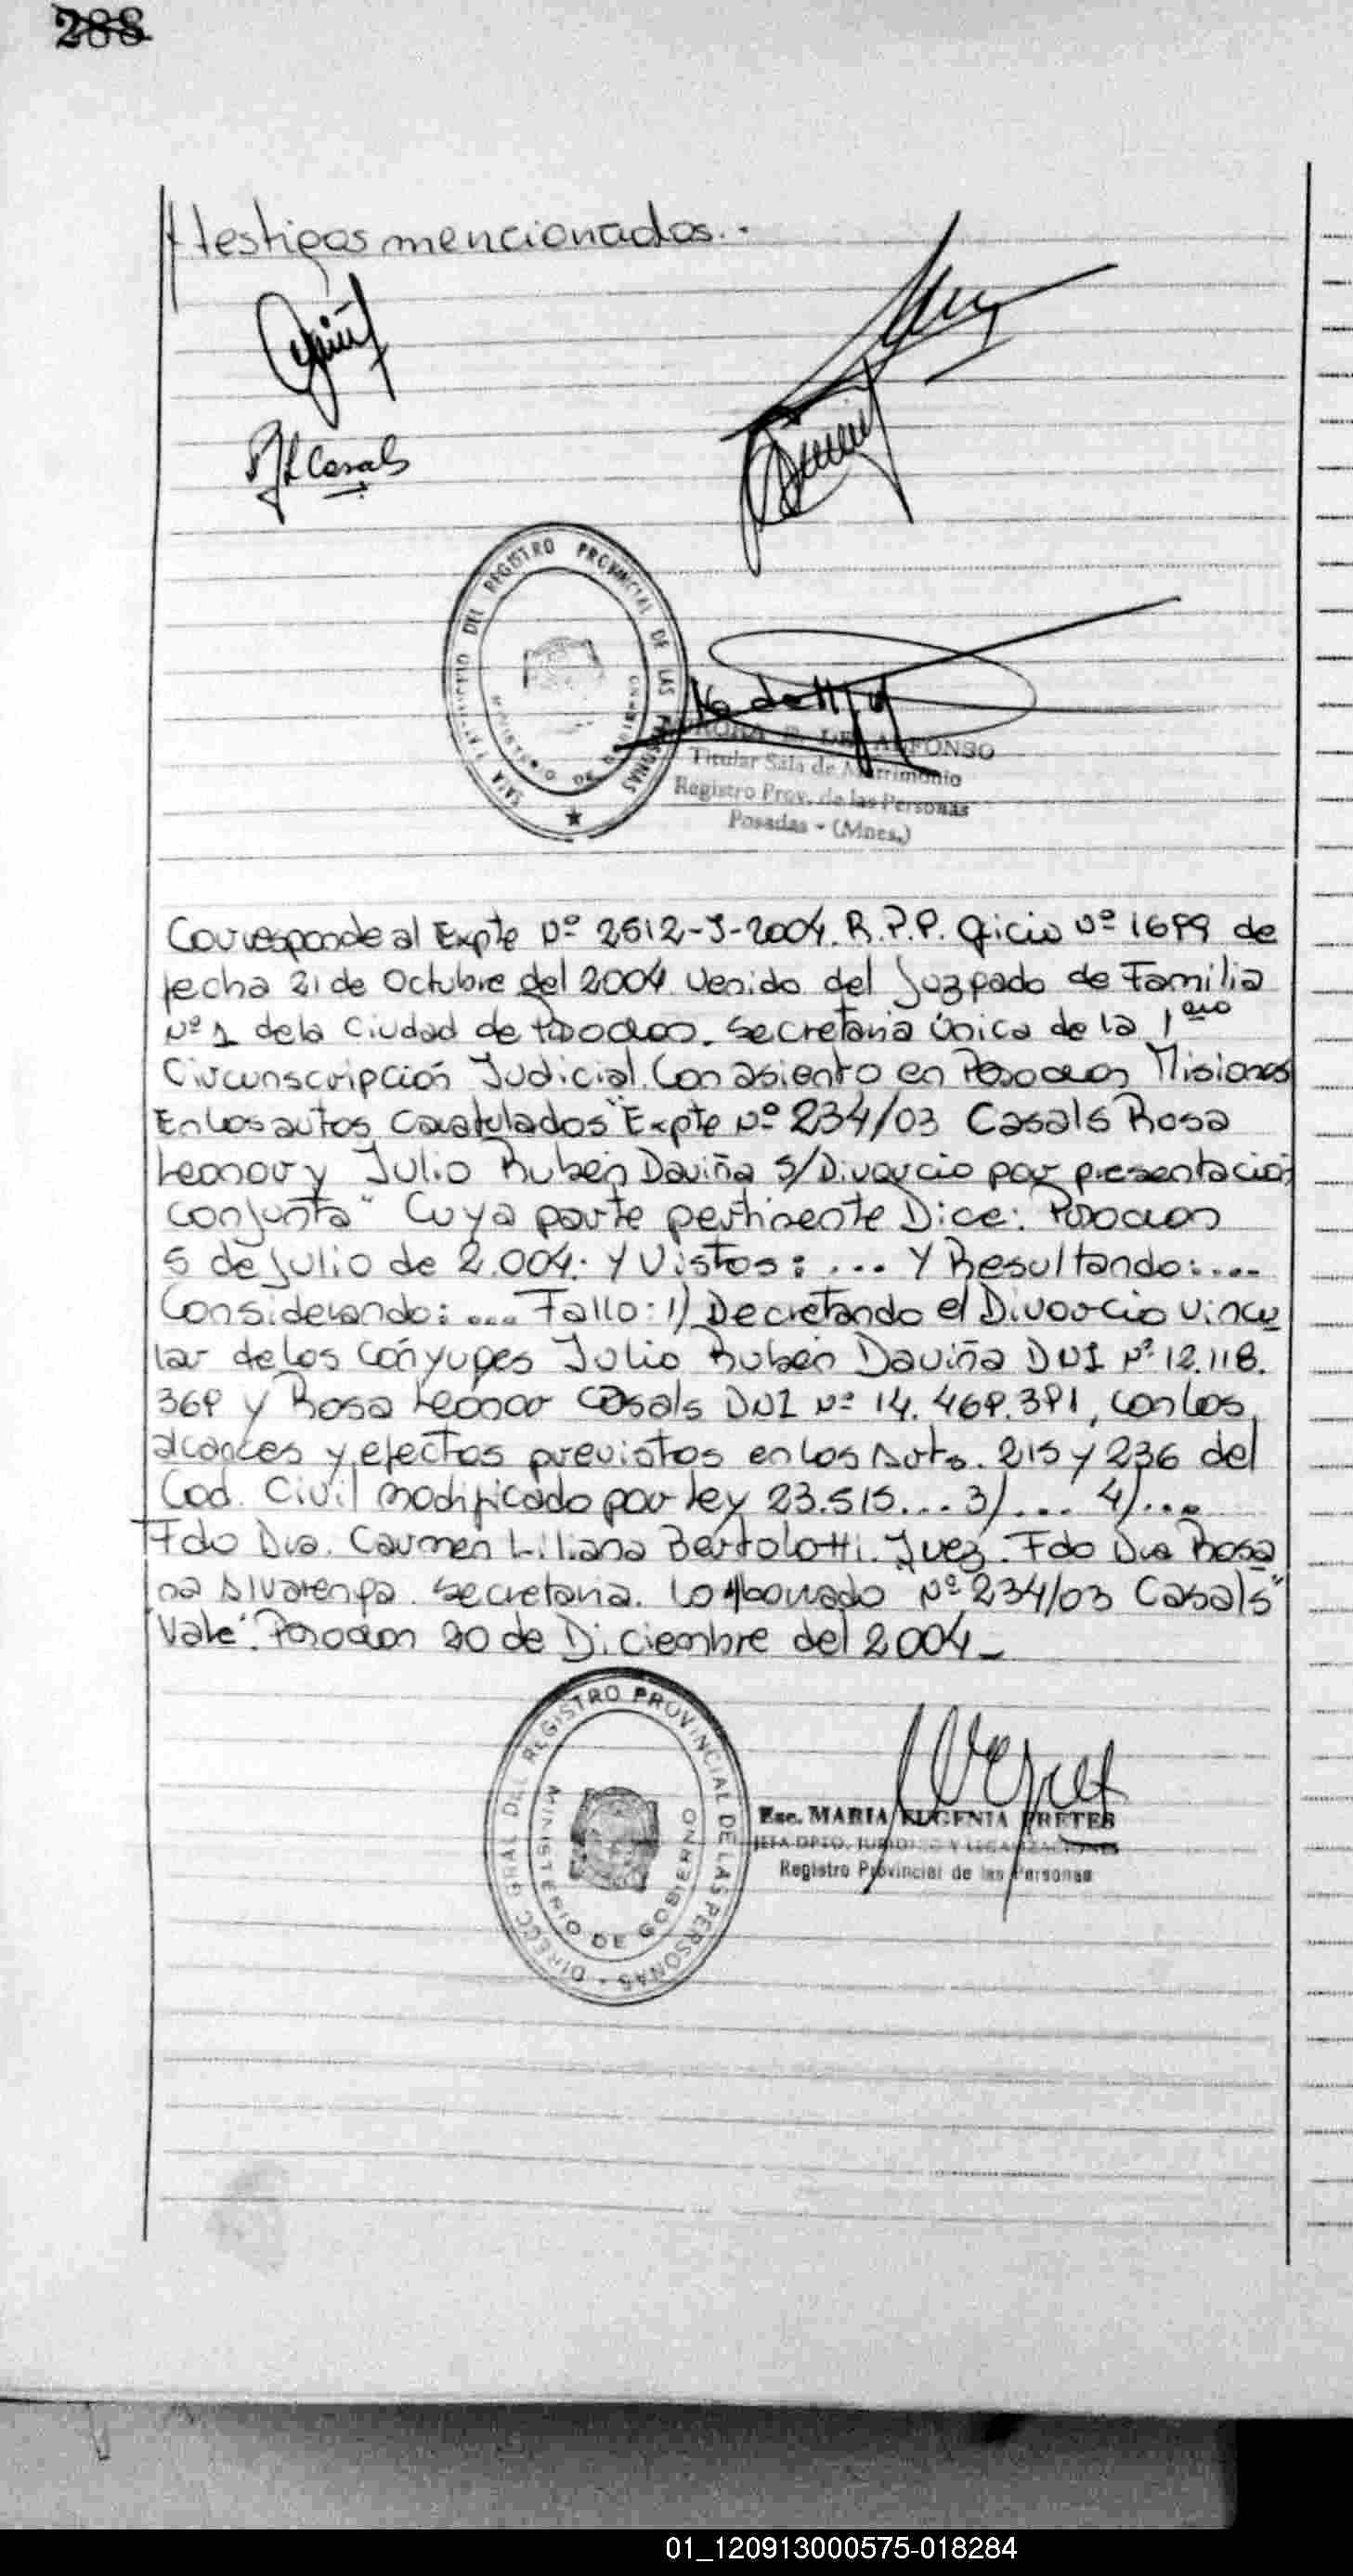 288
testigos mencionados..-
R L Casals
REGISTRO PROVINCIAL DE LAS PERSONAS
MINISTERIO DE GOBIERNO
ALFONSO
Titular Sala de Matrimonio
Registro Prov. de las Personas
Posadas - (Mnes.)
Corresponde al Expte Nº 2612-J-2004. R.P.P. Oficio Nº 1699 de
fecha 21 de Octubre del 2004 venido del Juzgado de Familia
Nº 1 de la Ciudad de Posadas. Secretaria Única de la 1era
Circunscripción Judicial. Con asiento en Posadas Misiones
En los autos Caratulados "Expte Nº 234/03 Casals Rosa
Leonor y Julio Ruben Daviña S/Divorcio por presentación
conjunta" Cuya parte pertinente Dice: Posadas
5 de Julio de 2.004. Y Vistos: ... Y Resultando:....
Considerando: .... Fallo: 1) Decretando el Divorcio vincu
lar de los Cónyuges Julio Ruben Daviña DNI Nº 12.118.
369 y Rosa Leonor Casals DNI Nº 14.469.391, con los
alcances y efectos previstos en los Arts. 215 y 236 del
Cod. Civil modificado por ley 23.515... 3)... 4)....
Fdo Dra. Carmen Liliana Bertolotti. Juez. Fdo Dra Rosa
na Alvarenga. Secretaria. Lo borrado "Nº 234/03 Casals"
"Vale". Posadas 20 de Diciembre del 2004_
DIRECC. GRAL DEL REGISTRO PROVINCIAL DE LAS PERSONAS
MINISTERIO DE GOBIERNO
Esc. MARIA EUGENIA PRETES
JEFA DPTO. JURIDICO Y LEGALIZACIONES
Registro Provincial de las Personas
01_120913000575-018284